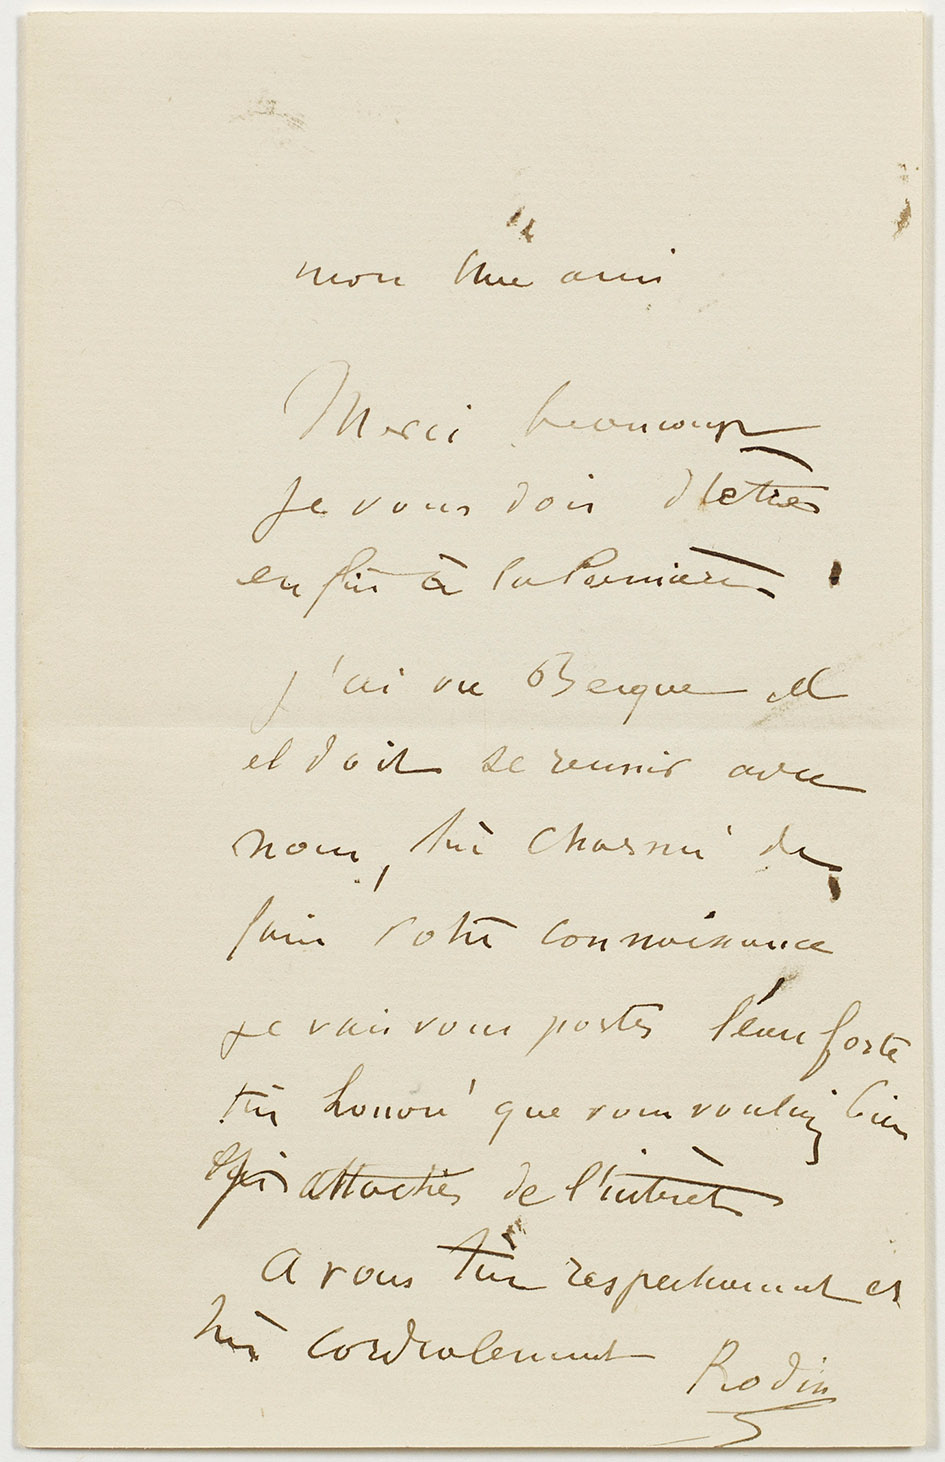 mon cher ami
Merci beaucoup
je vous dois d'etre
enfin à la lumiere
j'ai vu Bergue
el doit se reunir avec
nous, très charmé de
faire votre connaissance
je vais vous porter l'eau forte
très honoré que vous vouliez bien
attacher de l'intéret
A vous très respectueusement et
très cordialement Rodin